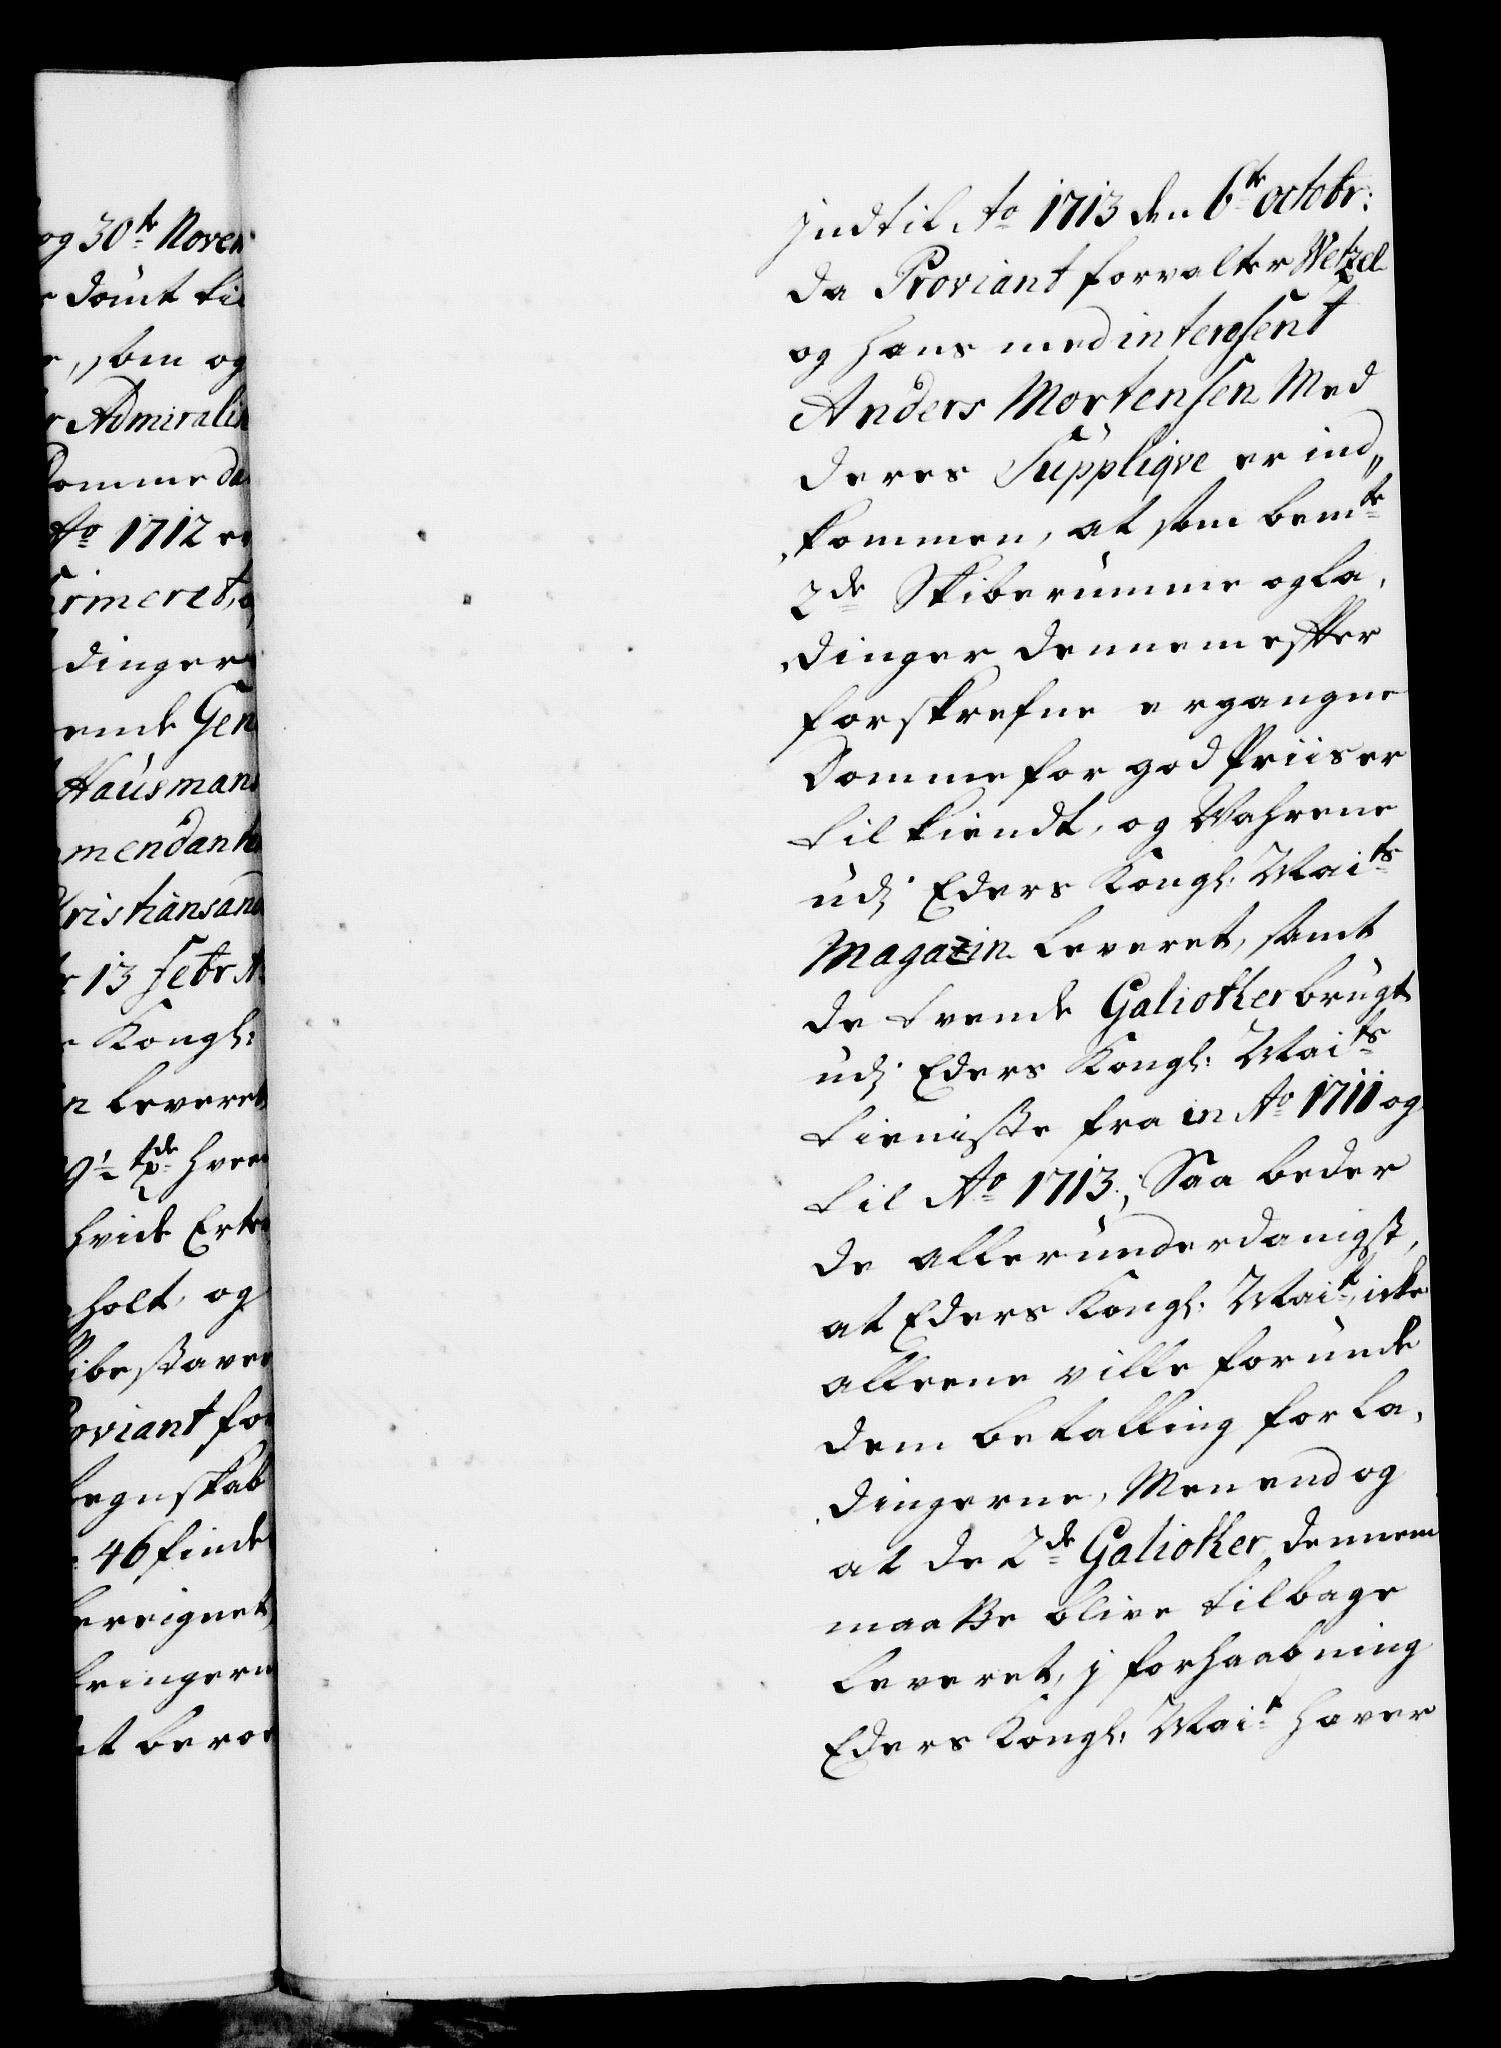 og 30te Novem
dömt til
, som og
Admiralit
Domme da
Ao 1712 er
firmeret, o
dinger
ende Gen
Hausman
mendante
Christiansand
13 Febr A
Kongl:
leveret
9½ hver
hvide Erte
holt, og
ibestaven
Proviant for
Regnskab
46 finde
bereignet,
leringern
at beroe
Indtil Ao 1713 den 6te octobr:
da Proviant forvalter Wetzel
og hans med interesent
Anders Mortensen Med
deres Supplique er ind„
„kommen, at som bemte
2de Skibe rumme og la„
„dinger dennem effter
forskrefne ergangne
Domme for god Priis er
til kiendt, og Wahrene
udj Eders Kongl: Maits
Magazin leveret, samt
de tvende Galiother brugt
udj Eders Kongl: Maits
tieniste fra in Ao 1711 og
til Ao 1713, Saa beder
de allerunderdanigst,
at Eders Kongl: Mait, icke
alleene ville forunde
dem betalling for la„
„dingerne, Men end og
at de 2de Galiother dennem
maatte blive tilbage
leveret, j forhaabning
Eders Kongl: Mait haver